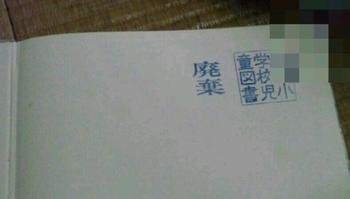 小
学校児
童図書
廃棄